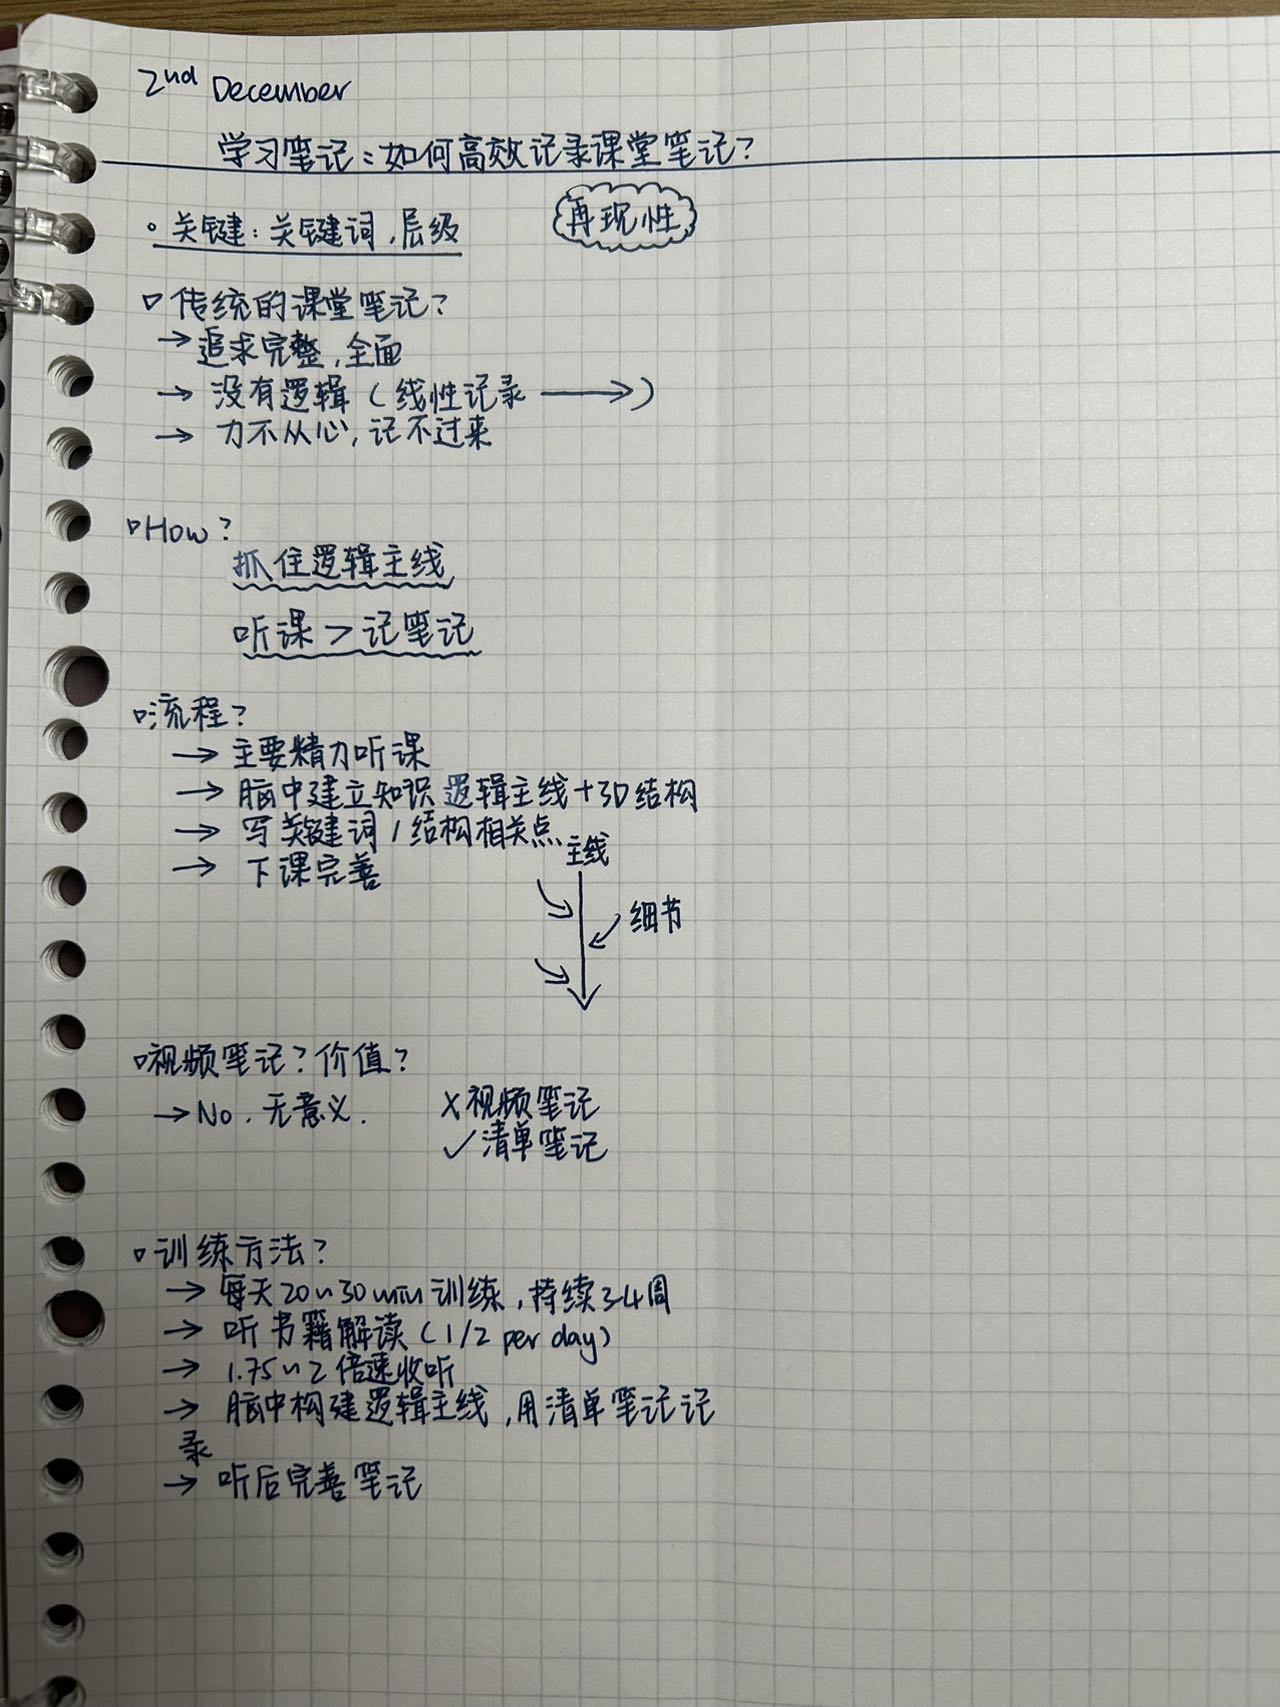 2nd December
学习笔记：如何高效记录课堂笔记？
。关键：关键词，层级
再现性
传统的课堂笔记？
→ 追求完整，全面
→ 没有逻辑（线性记录 →）
→ 力不从心，记不过来
How？
抓住逻辑主线
听课 > 记笔记
流程？
→ 主要精力听课
→ 脑中建立知识逻辑主线+3D结构
→ 写关键词/结构相关点
→ 下课完善
主线
细节
视频笔记？价值？
→ No. 无意义.
X 视频笔记
✓ 清单笔记
训练方法？
→ 每天20~30min训练，持续3-4周
→ 听书籍解读（1/2 per day）
→ 1.75~2倍速收听
→ 脑中构建逻辑主线，用清单笔记记
录
→ 听后完善笔记